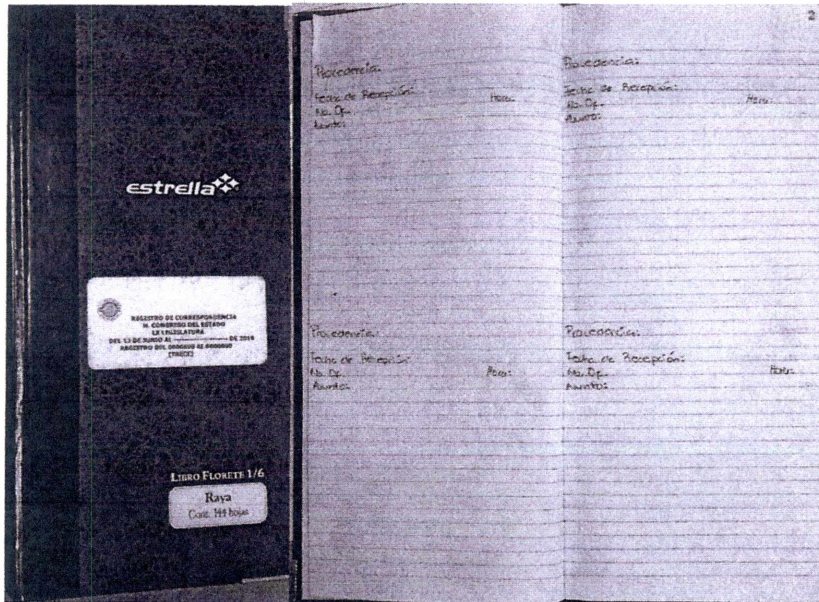 estrella
REGISTRO DE CORRESPONDENCIA
H. CONGRESO DEL ESTADO
LX LEGISLATURA
DEL 13 DE JUNIO AL DE 2016
REGISTRO DEL AL
[TRECE]
LIBRO FLORETE 1/6
Raya
Cont. 144 hojas
Procedencia:
Fecha de Recepción: Hora:
No. Of.
Asunto:
Procedencia:
Fecha de Recepción:
No. Of. Hora:
Asunto:
2
Procedencia:
Fecha de Recepción:
No. Of. Hora:
Asunto:
Procedencia:
Fecha de Recepción:
No. Of. Hora:
Asunto: